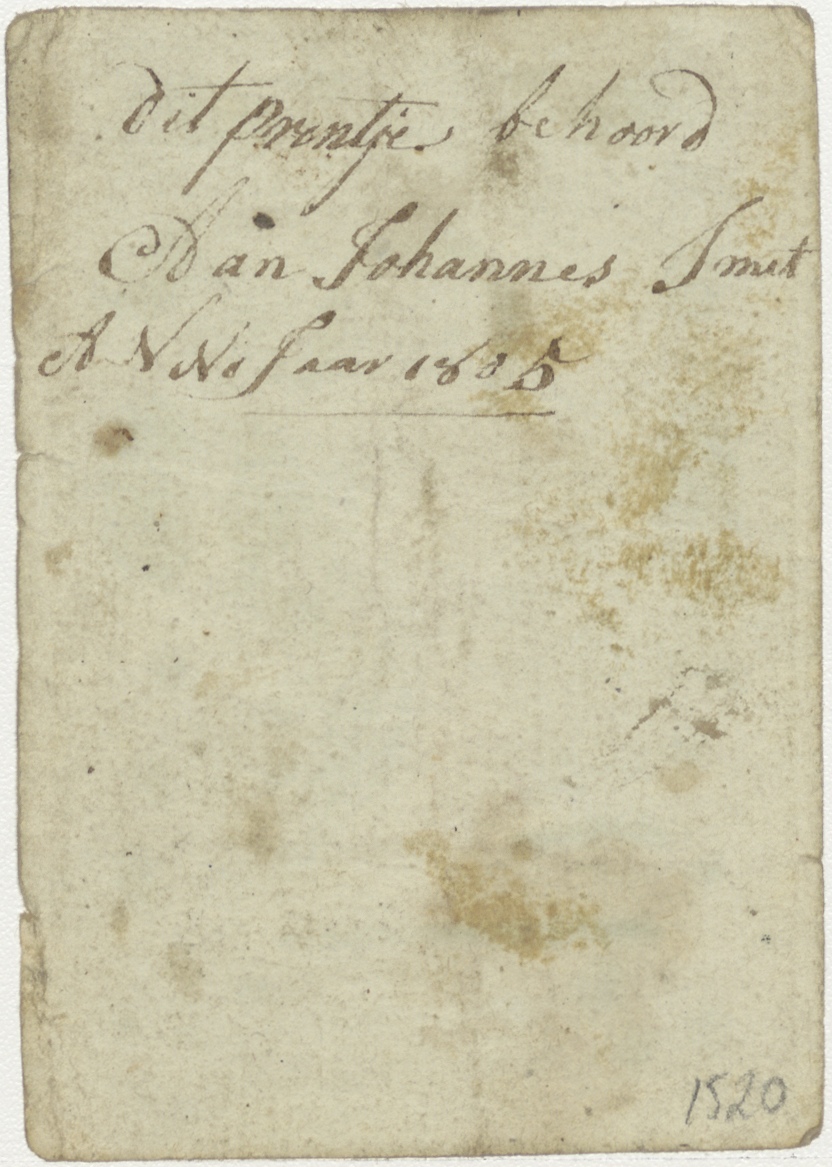 dit prentje behoord
Aan Johannes Smet
ANNo Jaar 1805
1520